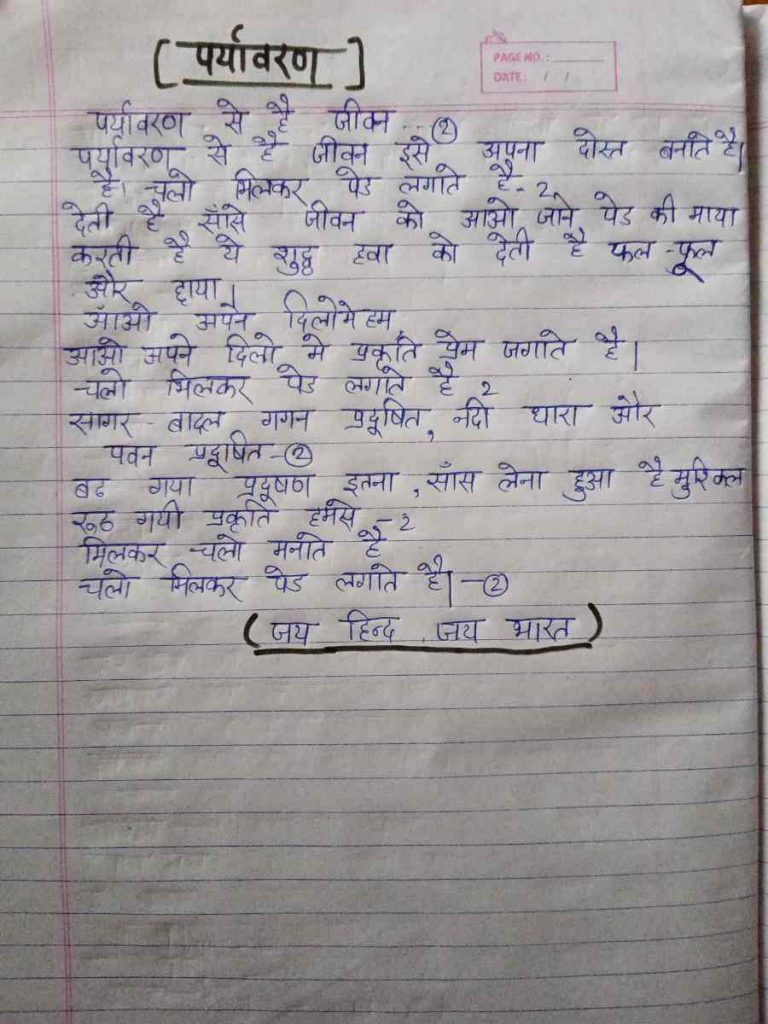 [ पर्यावरण ]
PAGE NO.:
DATE: / /
पर्यावरण से है जीवन - ②
पर्यावरण से है जीवन इसे अपना दोस्त बनाते है।
है। चलो मिलकर पेड लगाते है - 2
देती है साँसे जीवन को आओ जाने पेड की माया
करती है ये शुद्ध हवा को देती है फल - फूल
और छाया।
आँओ अपने दिलोमे हम,
आओ अपने दिलो मे प्रकृति प्रेम जगाते है।
चलो मिलकर पेड लगाते है 2
सागर - बादल गगन प्रदूषित, नदी धारा और
पवन प्रदूषित - ②
बढ गया प्रदूषण इतना, साँस लेना हुआ है मुश्किल
रूठ गयी प्रकृति हमसे - 2
मिलकर चलो मनाते है
चलो मिलकर पेड लगाते है। - ②
(जय हिन्द, जय भारत)